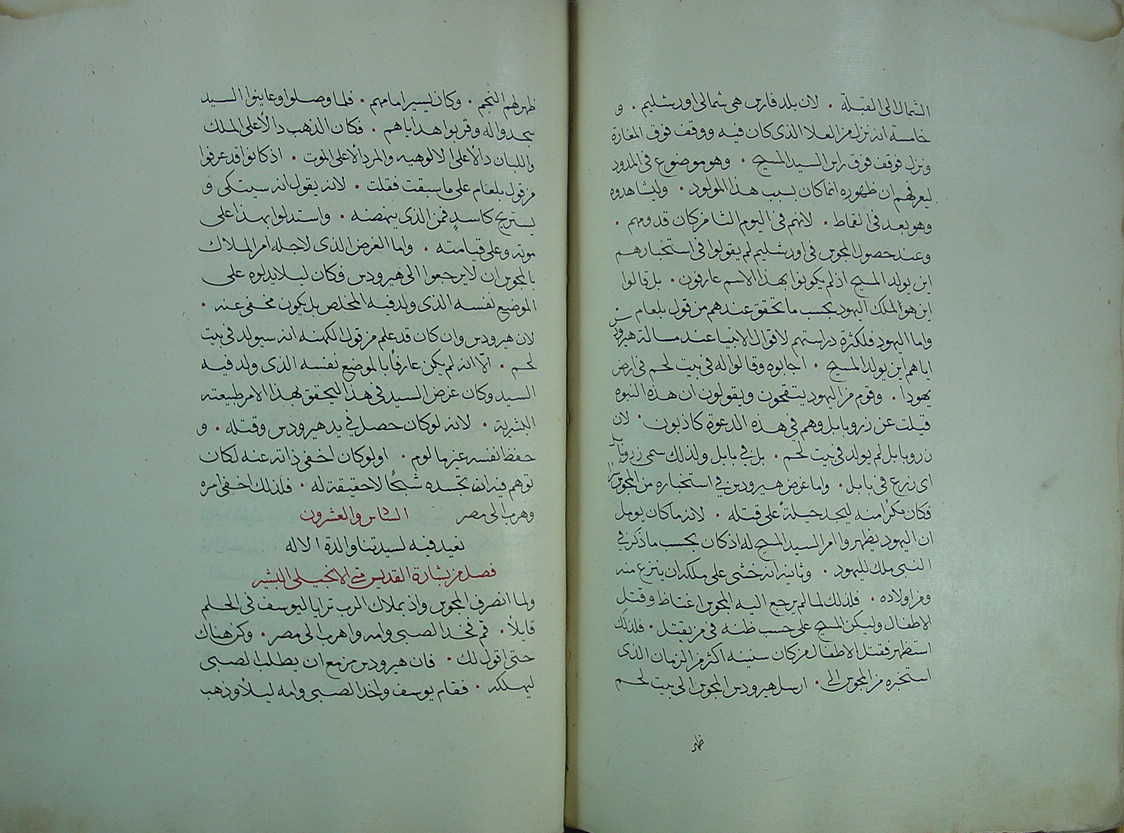 الشمال الى القبلة • لان بلد فارس هى شمالى اورشليم • و
خامسة انه نزل من العلا الذى كان فيه ووقف فوق المغارة
ونزل فوقف فوق راس السيد المسيح • وهو موضوع فى المدود
ليعرفهم ان ظهوره انما كان بسبب هذا المولود • وليشاهدوه
وهو بعد فى القماط • لانهم فى اليوم الثامن كان قدومهم •
وعند حصول المجوس فى اورشليم لم يقولوا فى استخبارهم
اين يولد المسيح اذ لم يكونوا بهذا الاسم عارفون • بل قالوا
اين هو الملك اليهود بحسب ما تحقق عندهم من قول بلعام
واما اليهود فلكثرة دراستهم لاقوال الانبيا عند مسالة هيرودس
اياهم اين يولد المسيح • اجابوه وقالوا له فى بيت لحم فى ارض
يهودا • وقوم من اليهود يتقحون ويقولون ان هذه النبوه
قيلت عن زروبابل وهم فى هذه الدعوة كاذبون • لان
زروبابل لم يولد فى بيت لحم • بل فى بابل ولذلك سمى زروبابل
اى زرع فى بابل • واما غرض هيرودس فى استخباره من المجوس
فكان مكرا منه ليجد حيلة على قتله • لانه ما كان يومل
ان اليهود يظهروا امر السيد المسيح له اذ كان بحسب ما ذكر فى
النبى ملك لليهود • وثانيه انه خشى على ملكه ان ينزع منه
ومن اولاده • فلذلك لما لم يرجع اليه المجوس اغتاظ وقتل
الاطفال وليكن المسيح على حسب ظنه فى من يقتل • فلذلك
استظهر فقتل الاطفال من كان سنينه اكثر من الزمان الذى
استخبره من المجوس الى • ارسل هيرودس المجوس الى بيت لحم
ظهر
ظهر لهم النجم • وكان يسير امامهم • فلما وصلوا وعاينوا السيد
سجدوا له وقربوا هداياهم • فكان الذهب دالا على الملك
واللبان دالا على الالوهيه والمر دالا على الموت • اذ كانوا قد عرفوا
من قول بلعام على ما سبقت فقلت • لانه يقول انه سيتكى و
يستريح كاسدٍ فمن الذى ينهضه • واستدلوا بهذا على
موته وعلى قيامته • واما الغرض الذى لاجله امر الملاك
بالمجوس ان لا يرجعوا الى هيرودس فكان ليلا يدلوه على
الموضع نفسه الذى ولد فيه المخلص بل يكون مخفى عنه •
لان هيرودس وان كان قد علم من قول الكهنه انه سيولد فى بيت
لحم • الّا انه لم يكن عارفًا بالموضع نفسه الذى ولد فيه
السيد وكان غرض السيد فى هذا ليحقق بهذا الامر طبيعته
البشرية • لانه لو كان حصل فى يد هيرودس وقتله • و
حفظ نفسه غير مالوم • او لو كان اخفى ذاته عنه لكان
توهم فيه ان تجسده شبحًا لا حقيقة له • فلذلك اخفى امره
وهرب الى مصر السادس والعشرون
نعيد فيه لسيدتنا والدة الاله
فصل من بشارة القديس متى الانجيلى البشير
ولما انصرف المجوس واذ بملاك الرب ترايا ليوسف فى الحلم
قايلًا • قم فخذ الصبى وامه واهرب الى مصر • وكن هناك
حتى اقول لك • فان هيرودس مزمع ان يطلب الصبى
ليهلكه • فقام يوسف واخذ الصبى وامه ليلًا وذهب